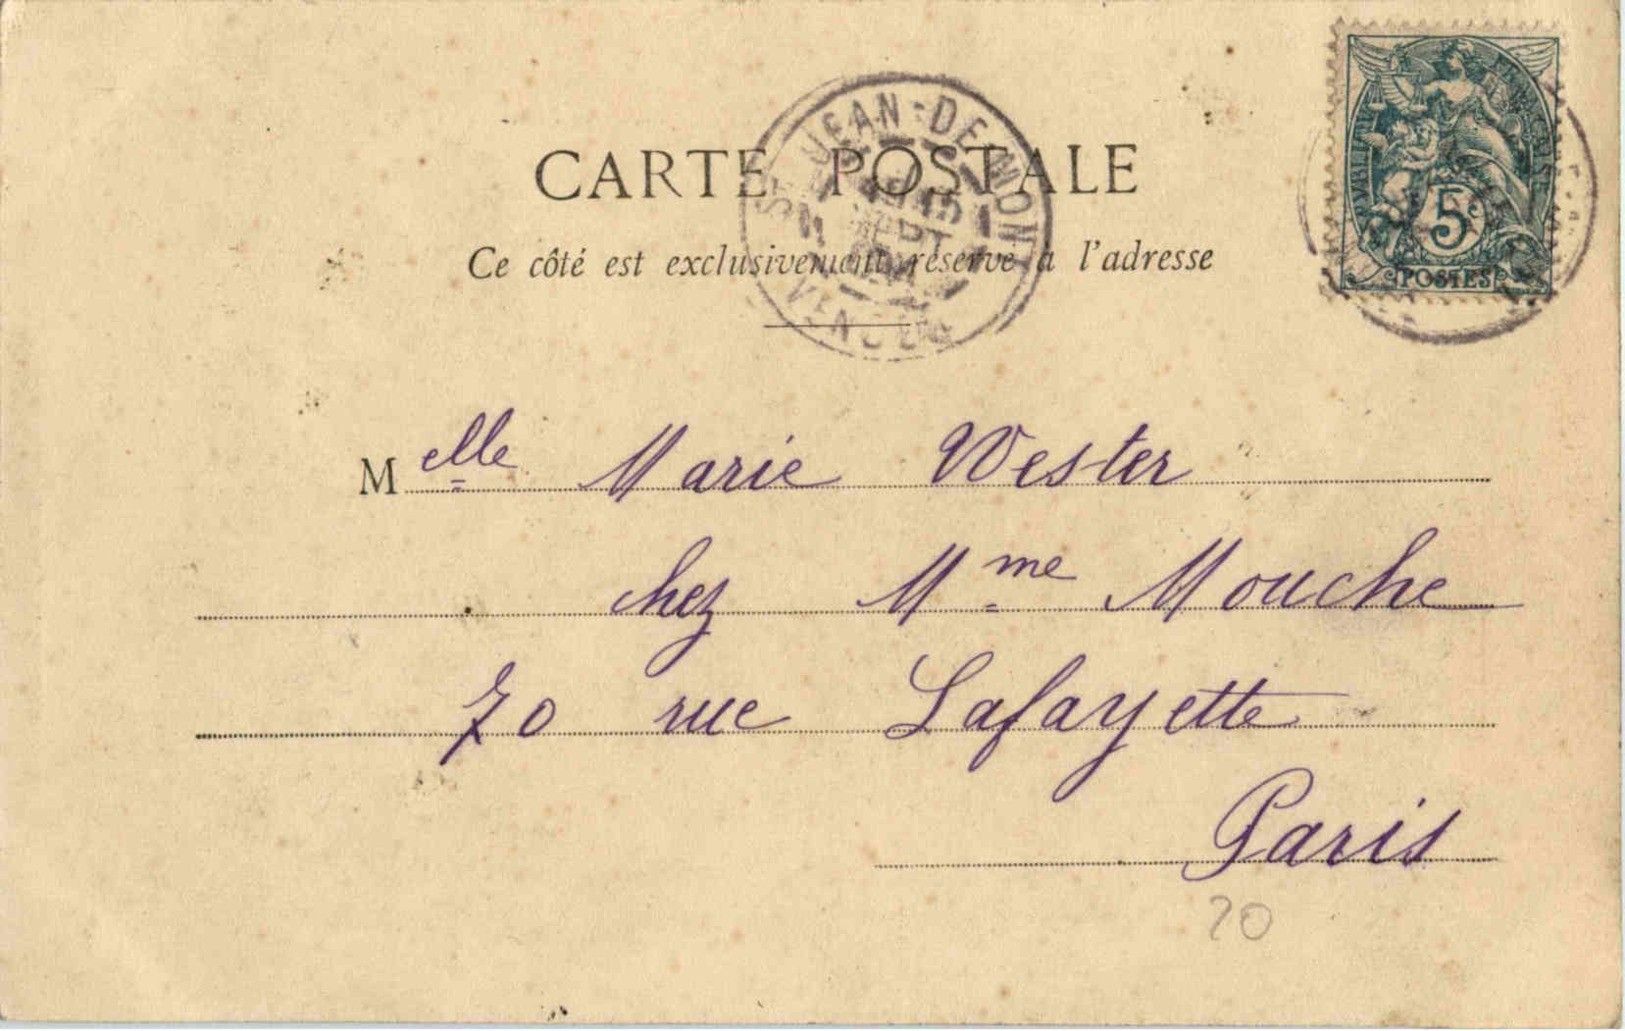 CARTE POSTALE
Ce côté est exclusivement réservé à l'adresse
ST JEAN-DE-MONT
VENDÉE
5c
POSTES
Melle Marie Wester
chez Mme Mouche
70 rue Lafayette
Paris
20